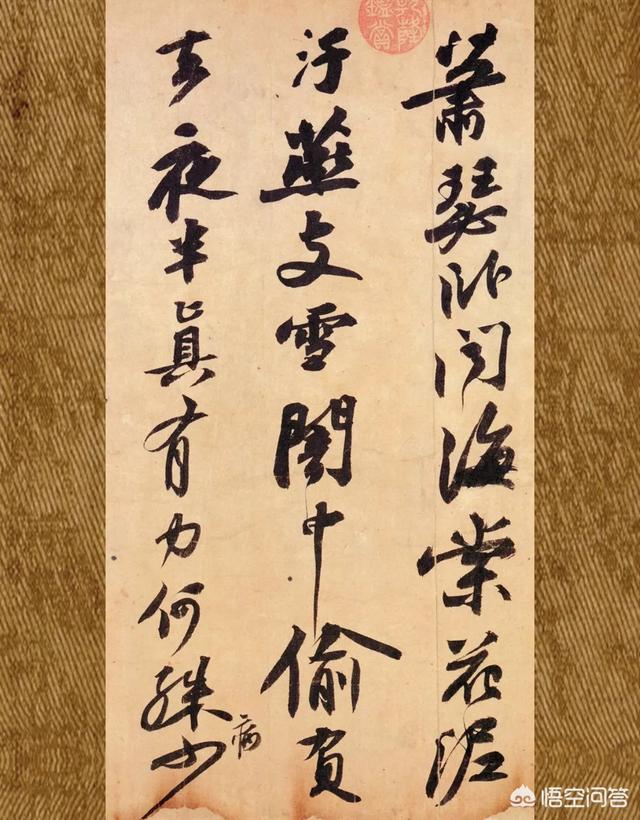 蕭瑟卧聞海棠花泥
汙燕支雪闇中偷負
去夜半眞有力何殊少
病
悟空问答